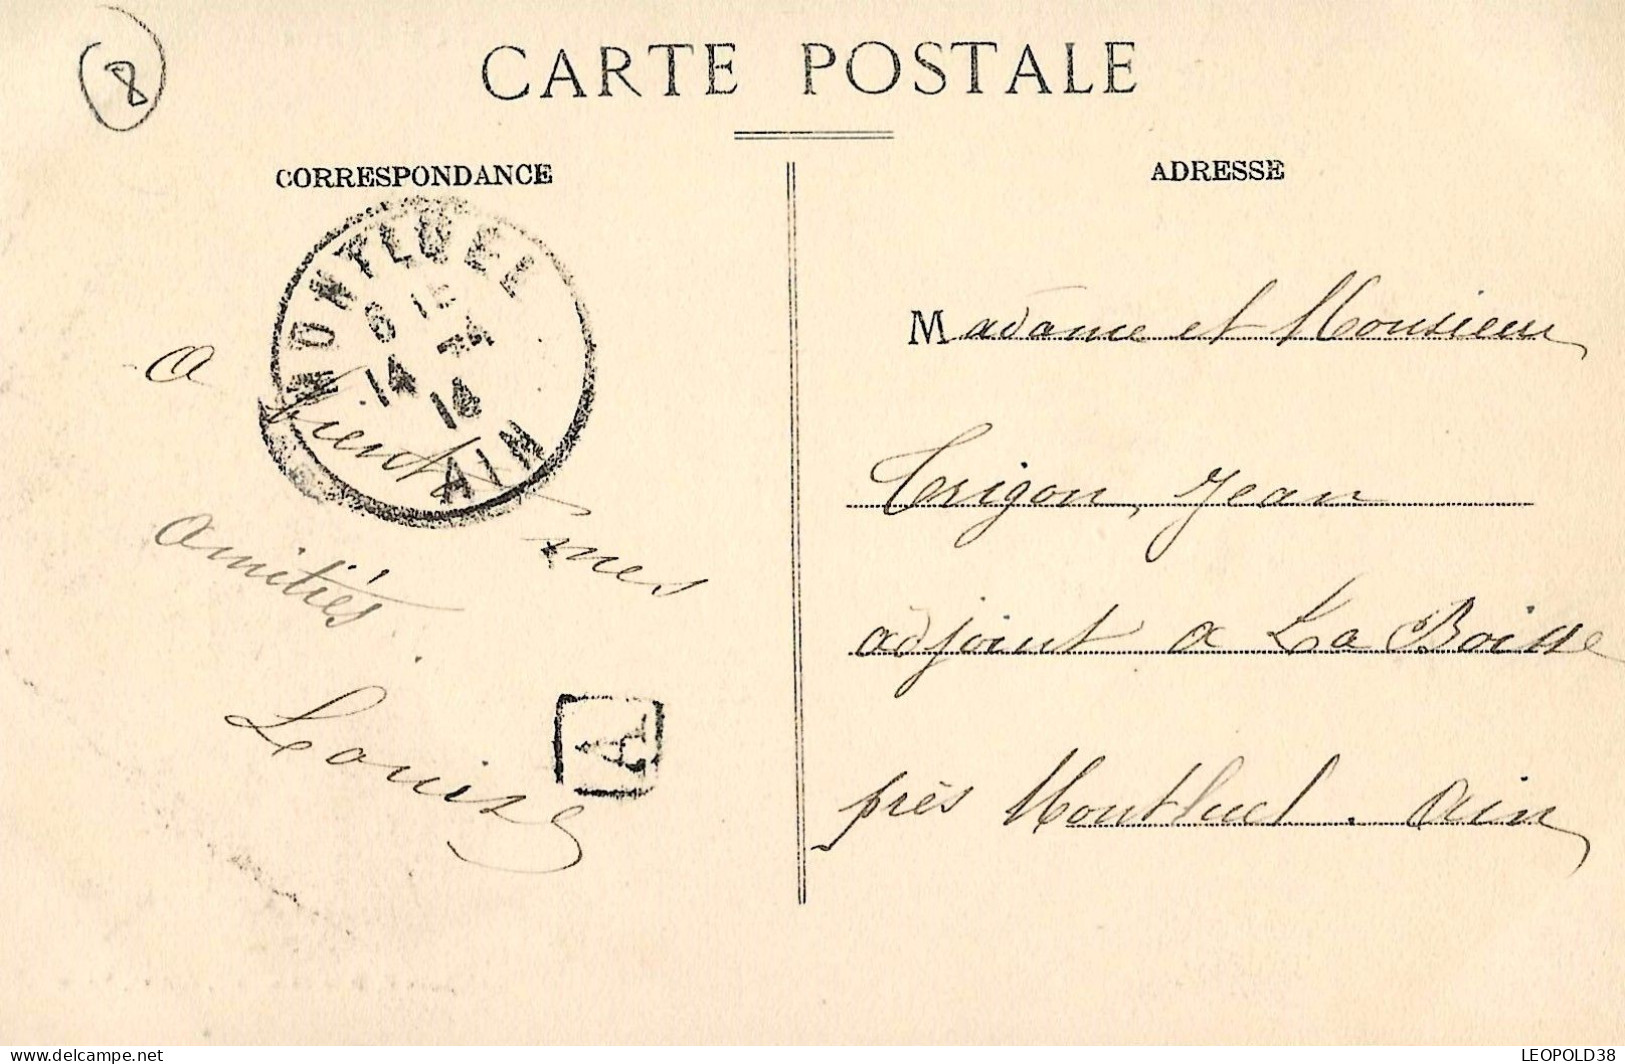 8
CARTE POSTALE
CORRESPONDANCE
ADRESSE
MONTLUEL
6 15
14 - 7
14
AIN
A bientot mes
amitiés.
Louise
A
Madame et Monsieur
Trigon, Jean
adjoint a La Boisse
près Montluel. Ain
LEOPOLD38